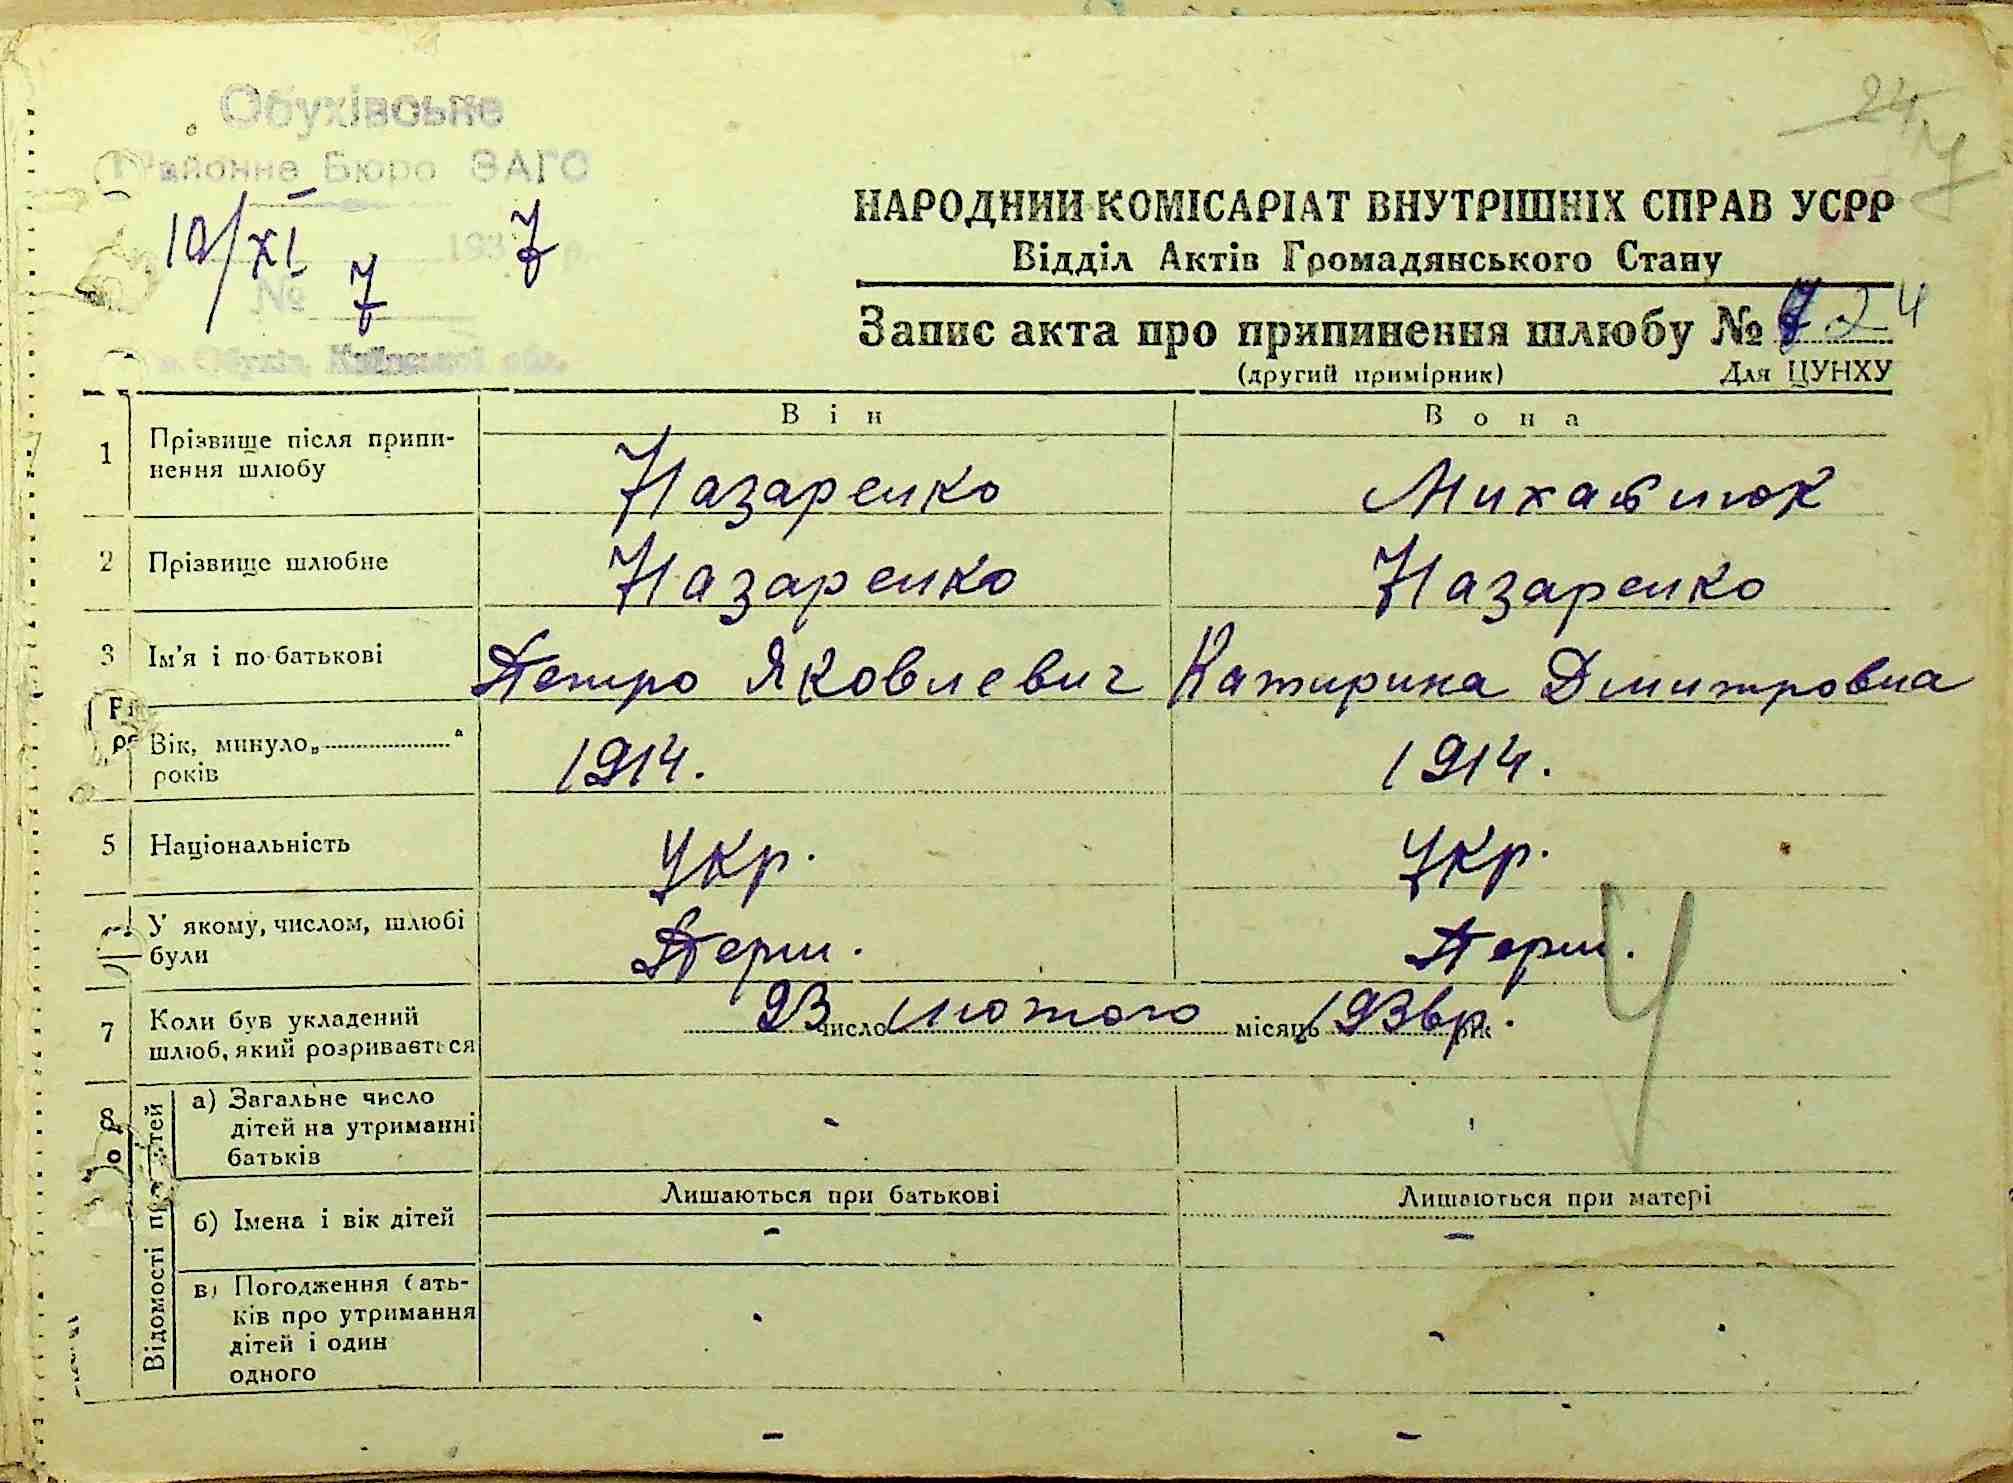 Обухівське
Районне Бюро ЗАГС
10/XI 1937 р.
№ 7
м. Обухів, Київської обл.
24
НАРОДНИЙ КОМІСАРІАТ ВНУТРІШНІХ СПРАВ УСРР
Відділ Актів Громадянського Стану
Запис акта про припинення шлюбу № 24
(другий примірник) Для ЦУНХУ
Він Вона
1 Прізвище після припи-
нення шлюбу Назаренко
2 Прізвище шлюбне Назаренко Назаренко
3 Ім'я і по-батькові Петро Яковлевич Катирина Дмитровна
Вік, минуло „ “
років 1914. 1914.
5 Національність Укр. Укр.
У якому, числом, шлюбі
були Перш. Перш.
7 Коли був укладений
шлюб, який розривається 23 число лютого місяць 1936р. рік
8 Відомості про дітей
а) Загальне число
дітей на утриманні
батьків - -
б) Імена і вік дітей Лишаються при батькові Лишаються при матері
- -
в) Погодження бать-
ків про утримання
дітей і один
одного - -
- -